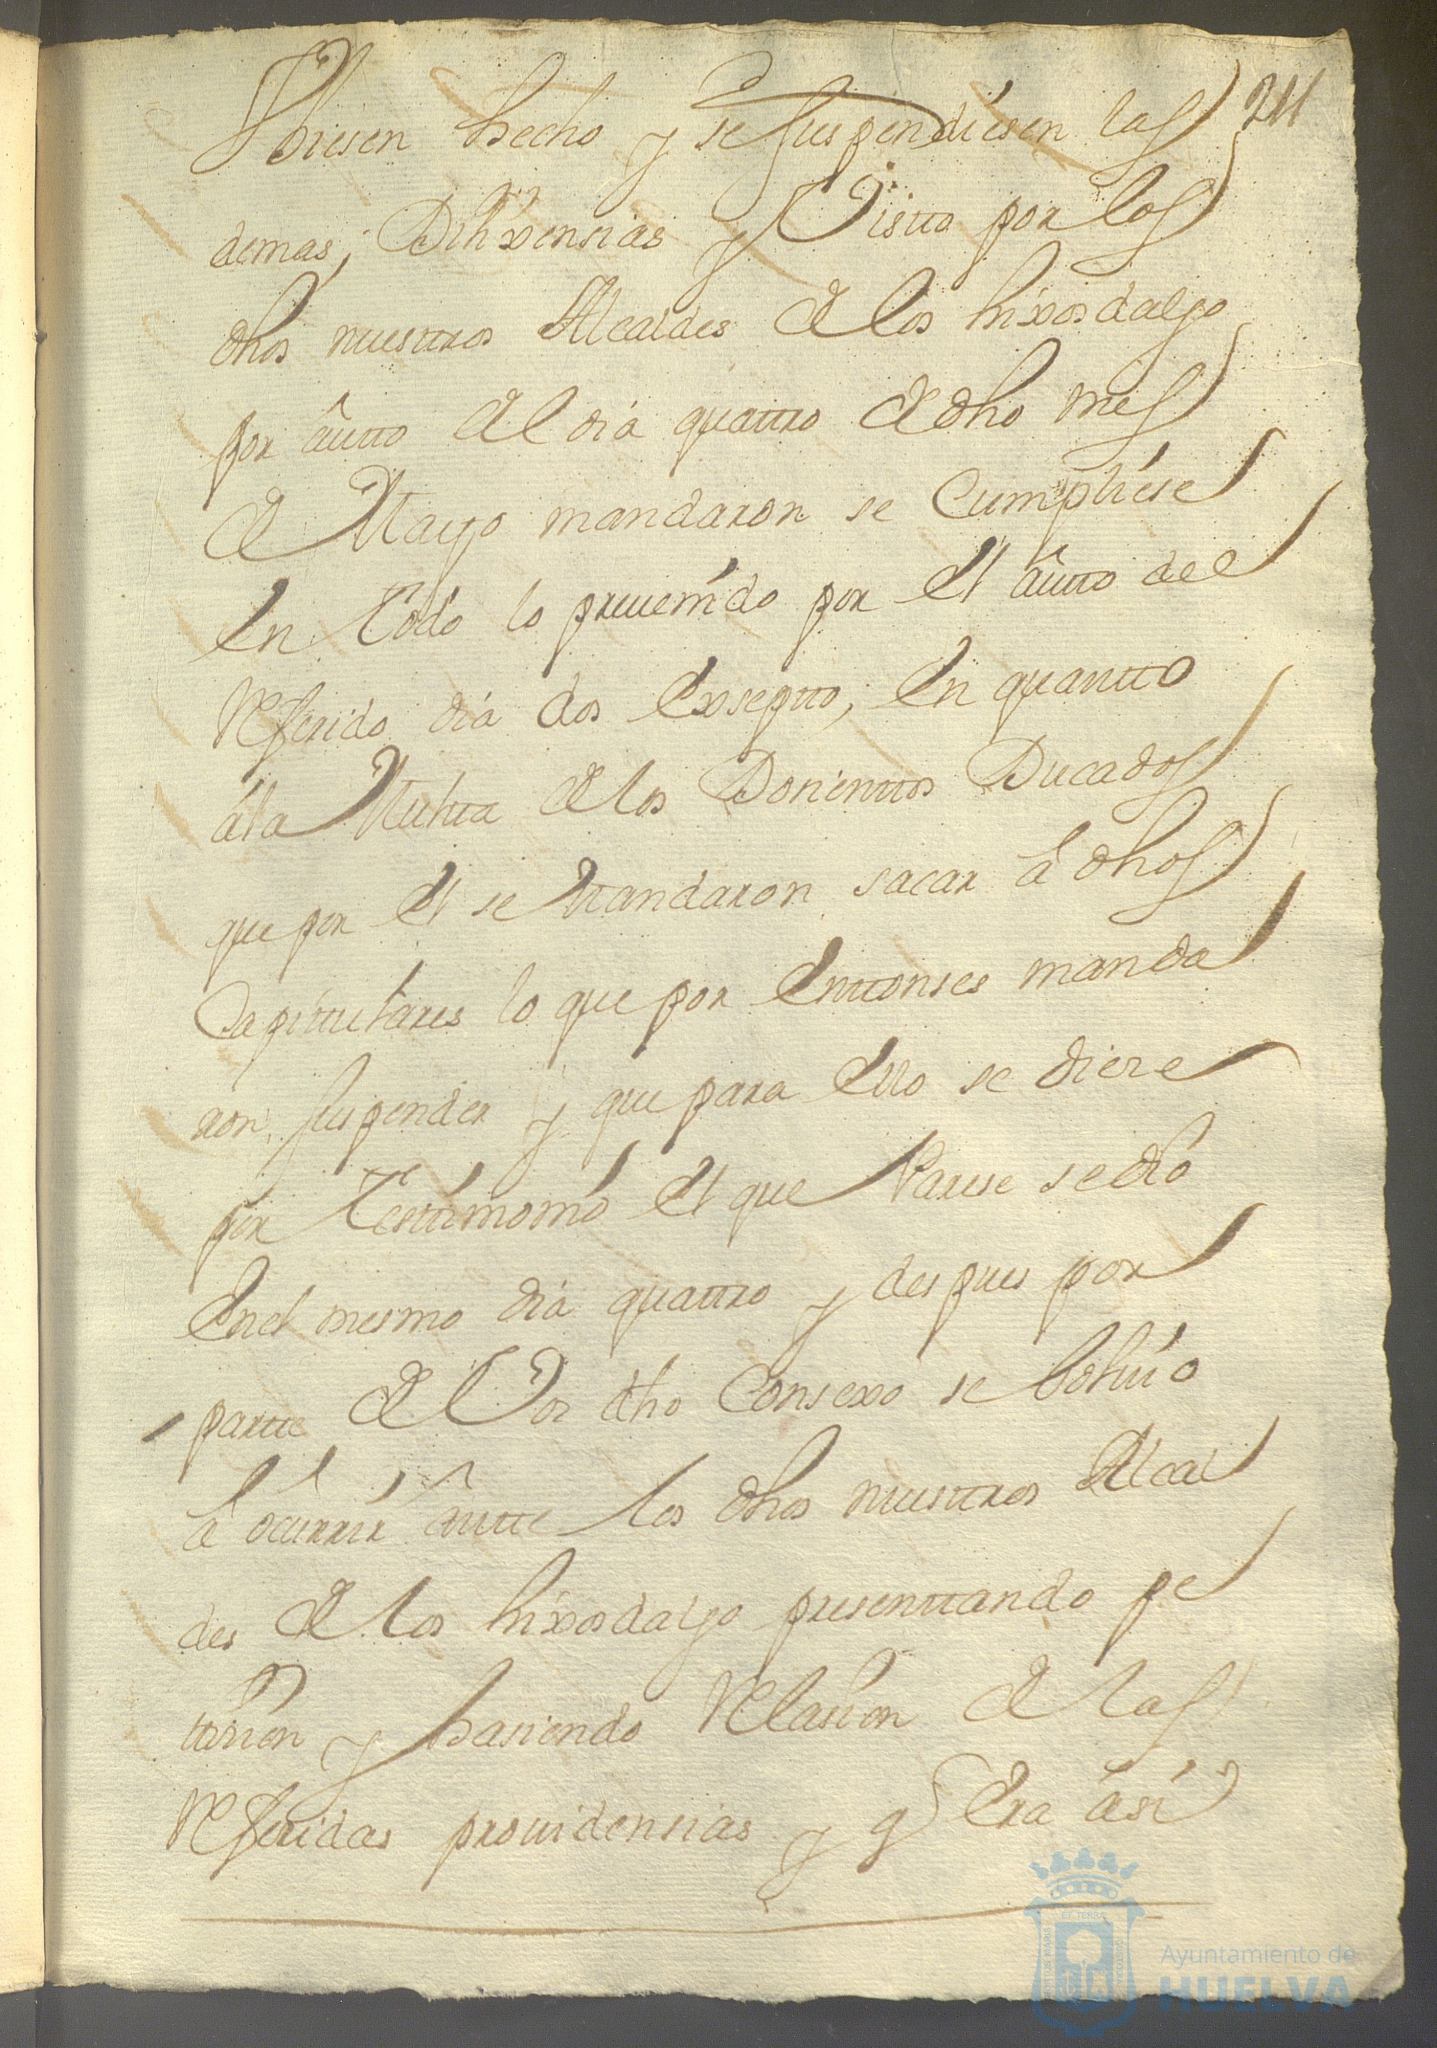 211
Vbiesen hecho y se suspendiesen las
demas, Dilixensias y Vistto por los
dhos nuesttros Alcaldes de los hixosdalgo
por autto del dia quattro de dho mes
de Mayo mandaron se Cumpliese
En Todo lo preuenido por El autto del
Referido dia dos Exsepto, En quantto
á la Multa de los Dosienttos Ducados
que por El se Mandaron sacar á dhos
Capittulares lo que por Enttonses manda
ron suspender y que para Ello se diere
por Testtimonio El que Parese se dió
En el mesmo dia quattro y despues por
partte de Vos dho Consexo se bolvió
á ocurrir antte los dhos nuesttros Alcal
des de los hixosdalgo presenttando pe
tision y hasiendo Relasion de las
Referidas prouidensias y q Era asi
Ayuntamiento de
HUELVA